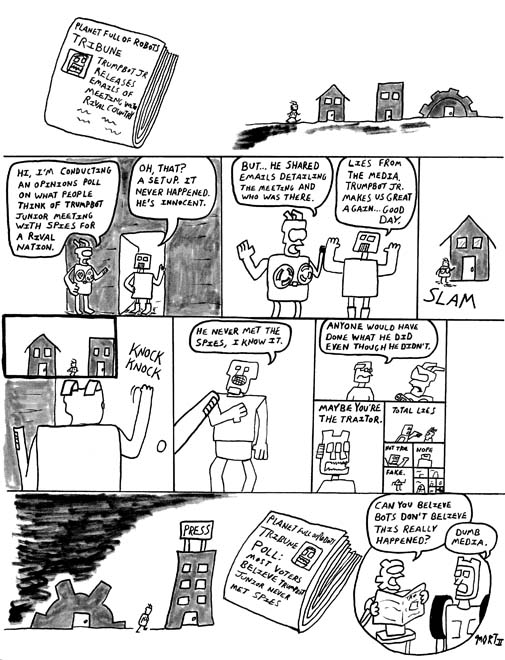 PLANET FULL OF ROBOTS
TRIBUNE
TRUMPBOT JR
RELEASES
EMAILS OF
MEETING WITH
RIVAL COUNTRY
HI, I'M CONDUCTING
AN OPINIONS POLL
ON WHAT PEOPLE
THINK OF TRUMPBOT
JUNIOR MEETING
WITH SPIES FOR
A RIVAL
NATION.
OH, THAT?
A SETUP. IT
NEVER HAPPENED.
HE'S INNOCENT.
BUT... HE SHARED
EMAILS DETAILING
THE MEETING AND
WHO WAS THERE.
LIES FROM
THE MEDIA.
TRUMPBOT JR.
MAKES US GREAT
AGAIN... GOOD
DAY.
SLAM
KNOCK
KNOCK
HE NEVER MET THE
SPIES, I KNOW IT.
ANYONE WOULD HAVE
DONE WHAT HE DID
EVEN THOUGH HE DIDN'T.
MAYBE YOU'RE
THE TRAITOR.
TOTAL LIES
NOT TRUE
NOPE
FAKE.
PRESS
PLANET FULL OF ROBOTS
TRIBUNE
POLL:
MOST VOTERS
BELIEVE TRUMPBOT
JUNIOR NEVER
MET SPIES
CAN YOU BELIEVE
BOTS DON'T BELIEVE
THIS REALLY
HAPPENED?
DUMB
MEDIA.
MORT II